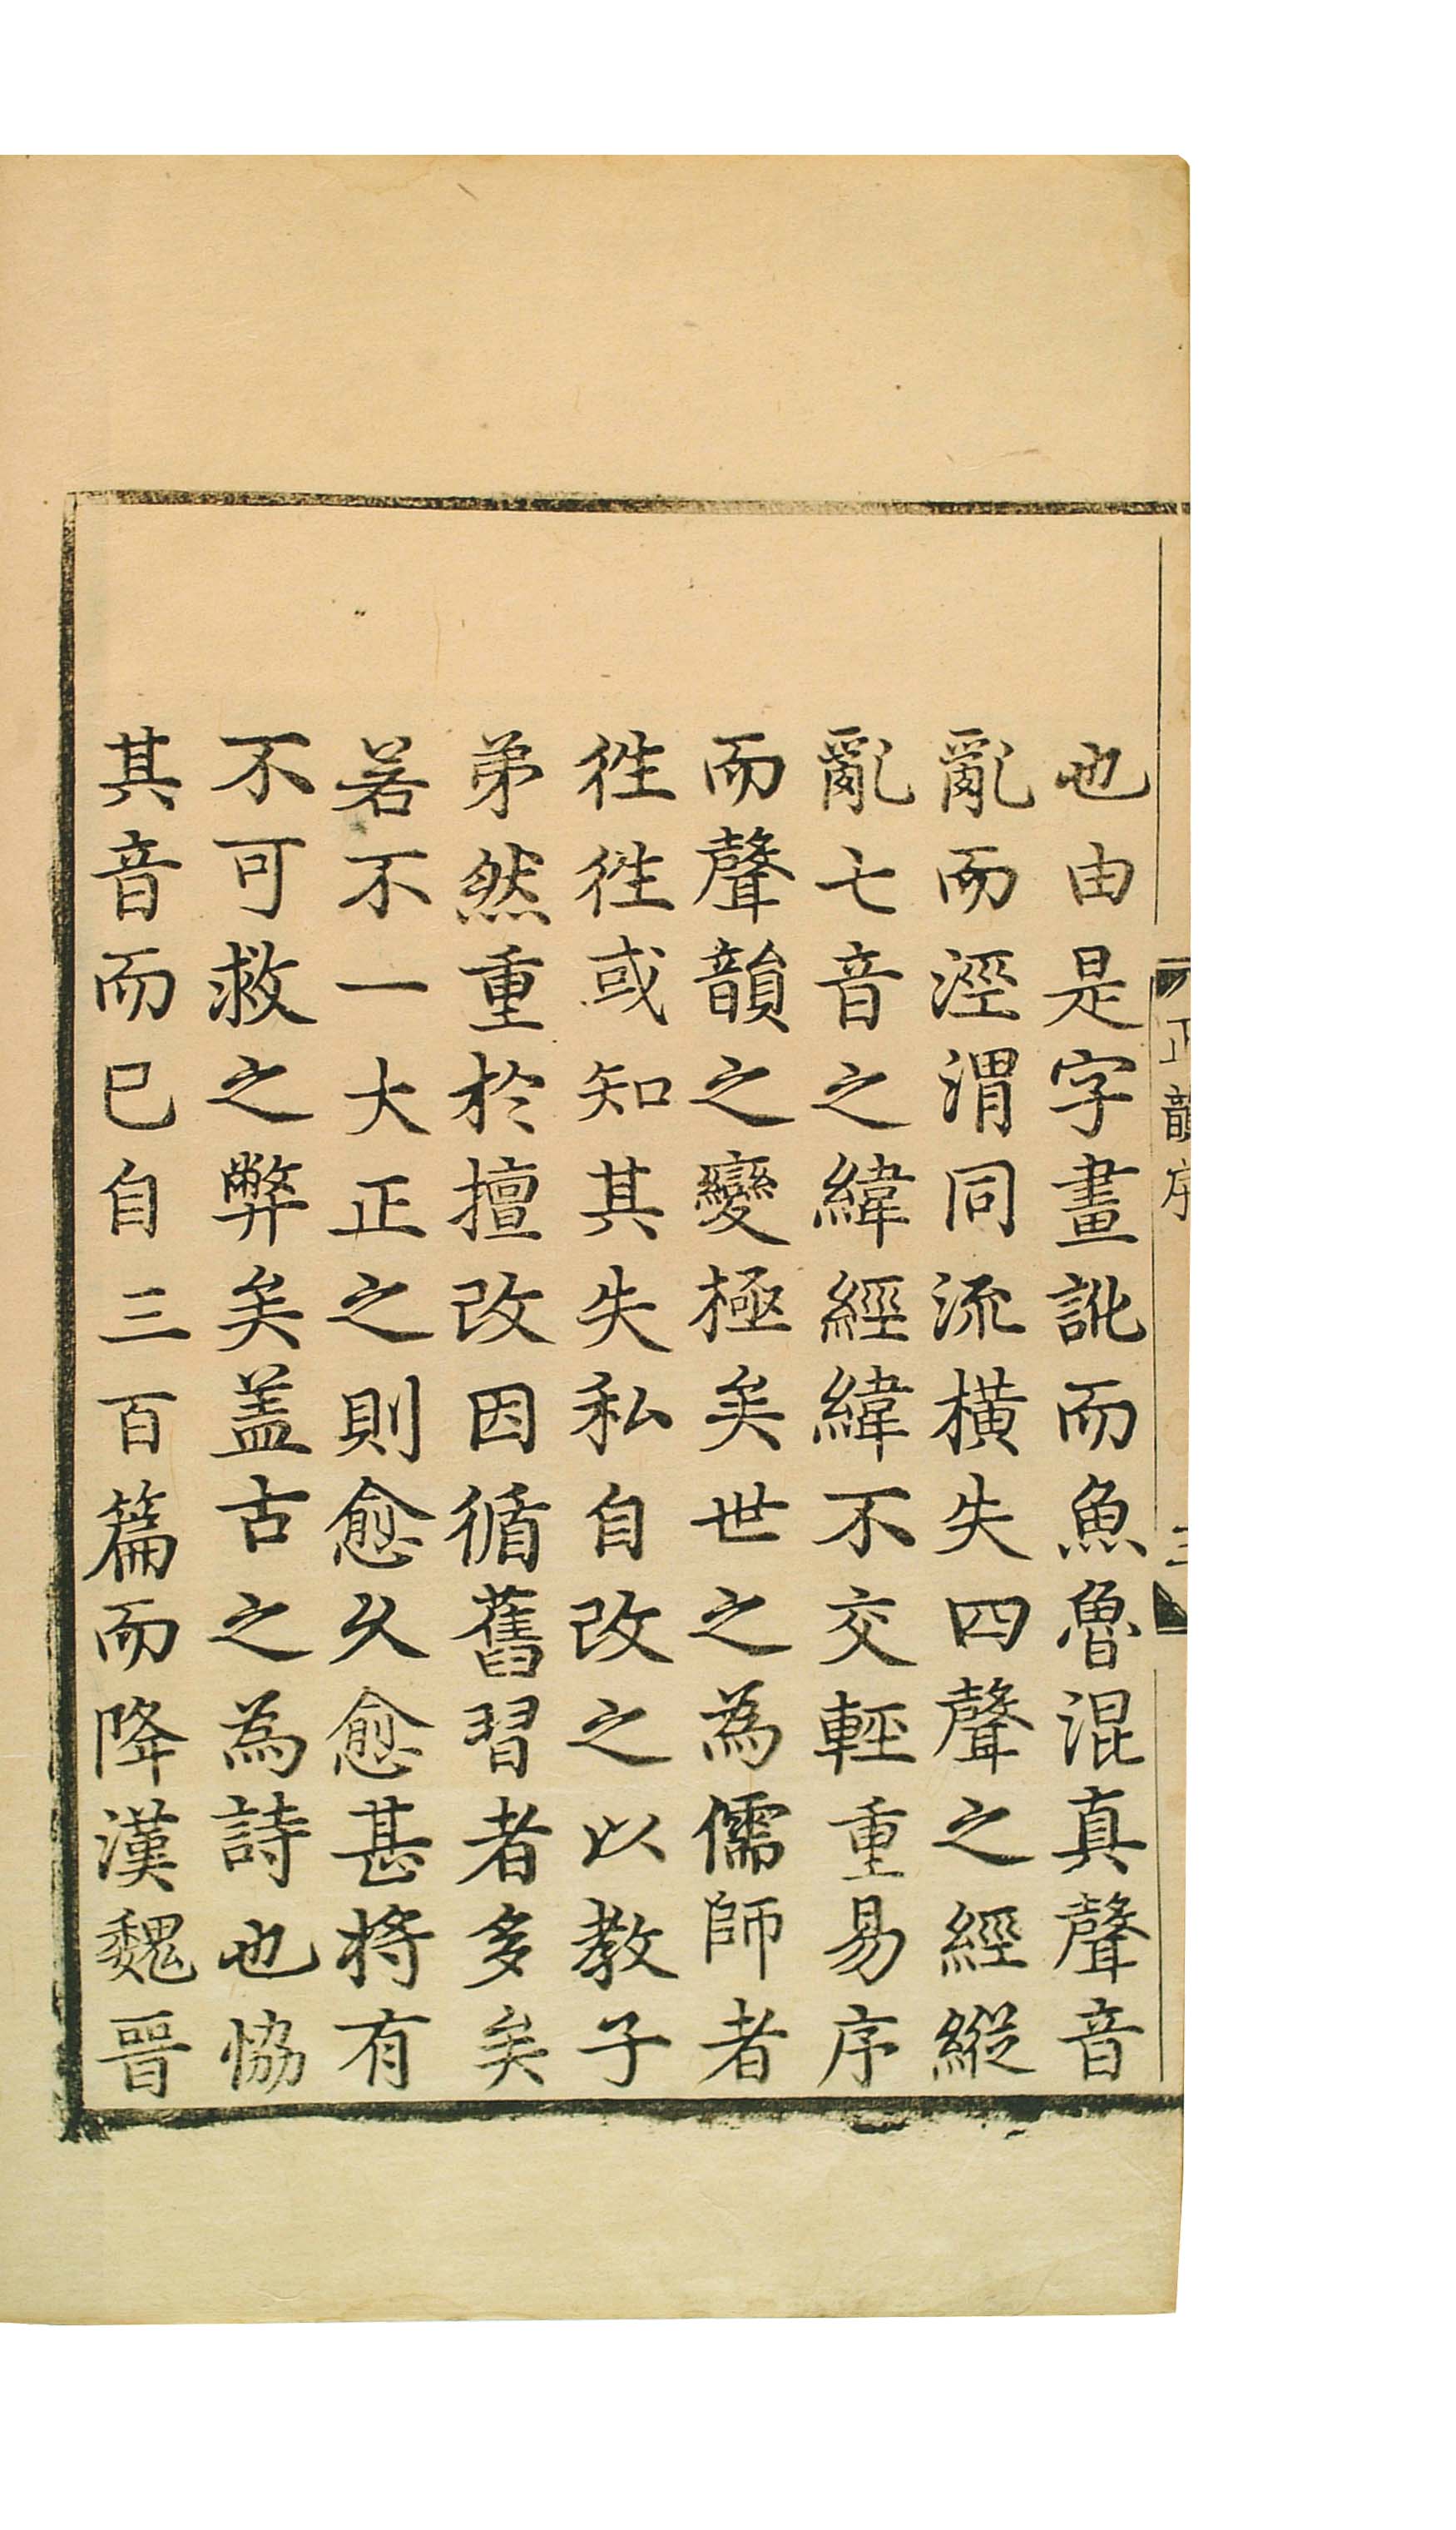 也由是字畫訛而魚魯混真聲音
亂而涇渭同流橫失四聲之經縱
亂七音之緯經緯不交輕重易序
而聲韻之變極矣世之為儒師者
徃徃或知其失私自改之以教子
弟然重於擅改因循舊習者多矣
若不一大正之則愈久愈甚將有
不可救之弊矣盖古之為詩也恊
其音而已自三百篇而降漢魏晉
正韻序